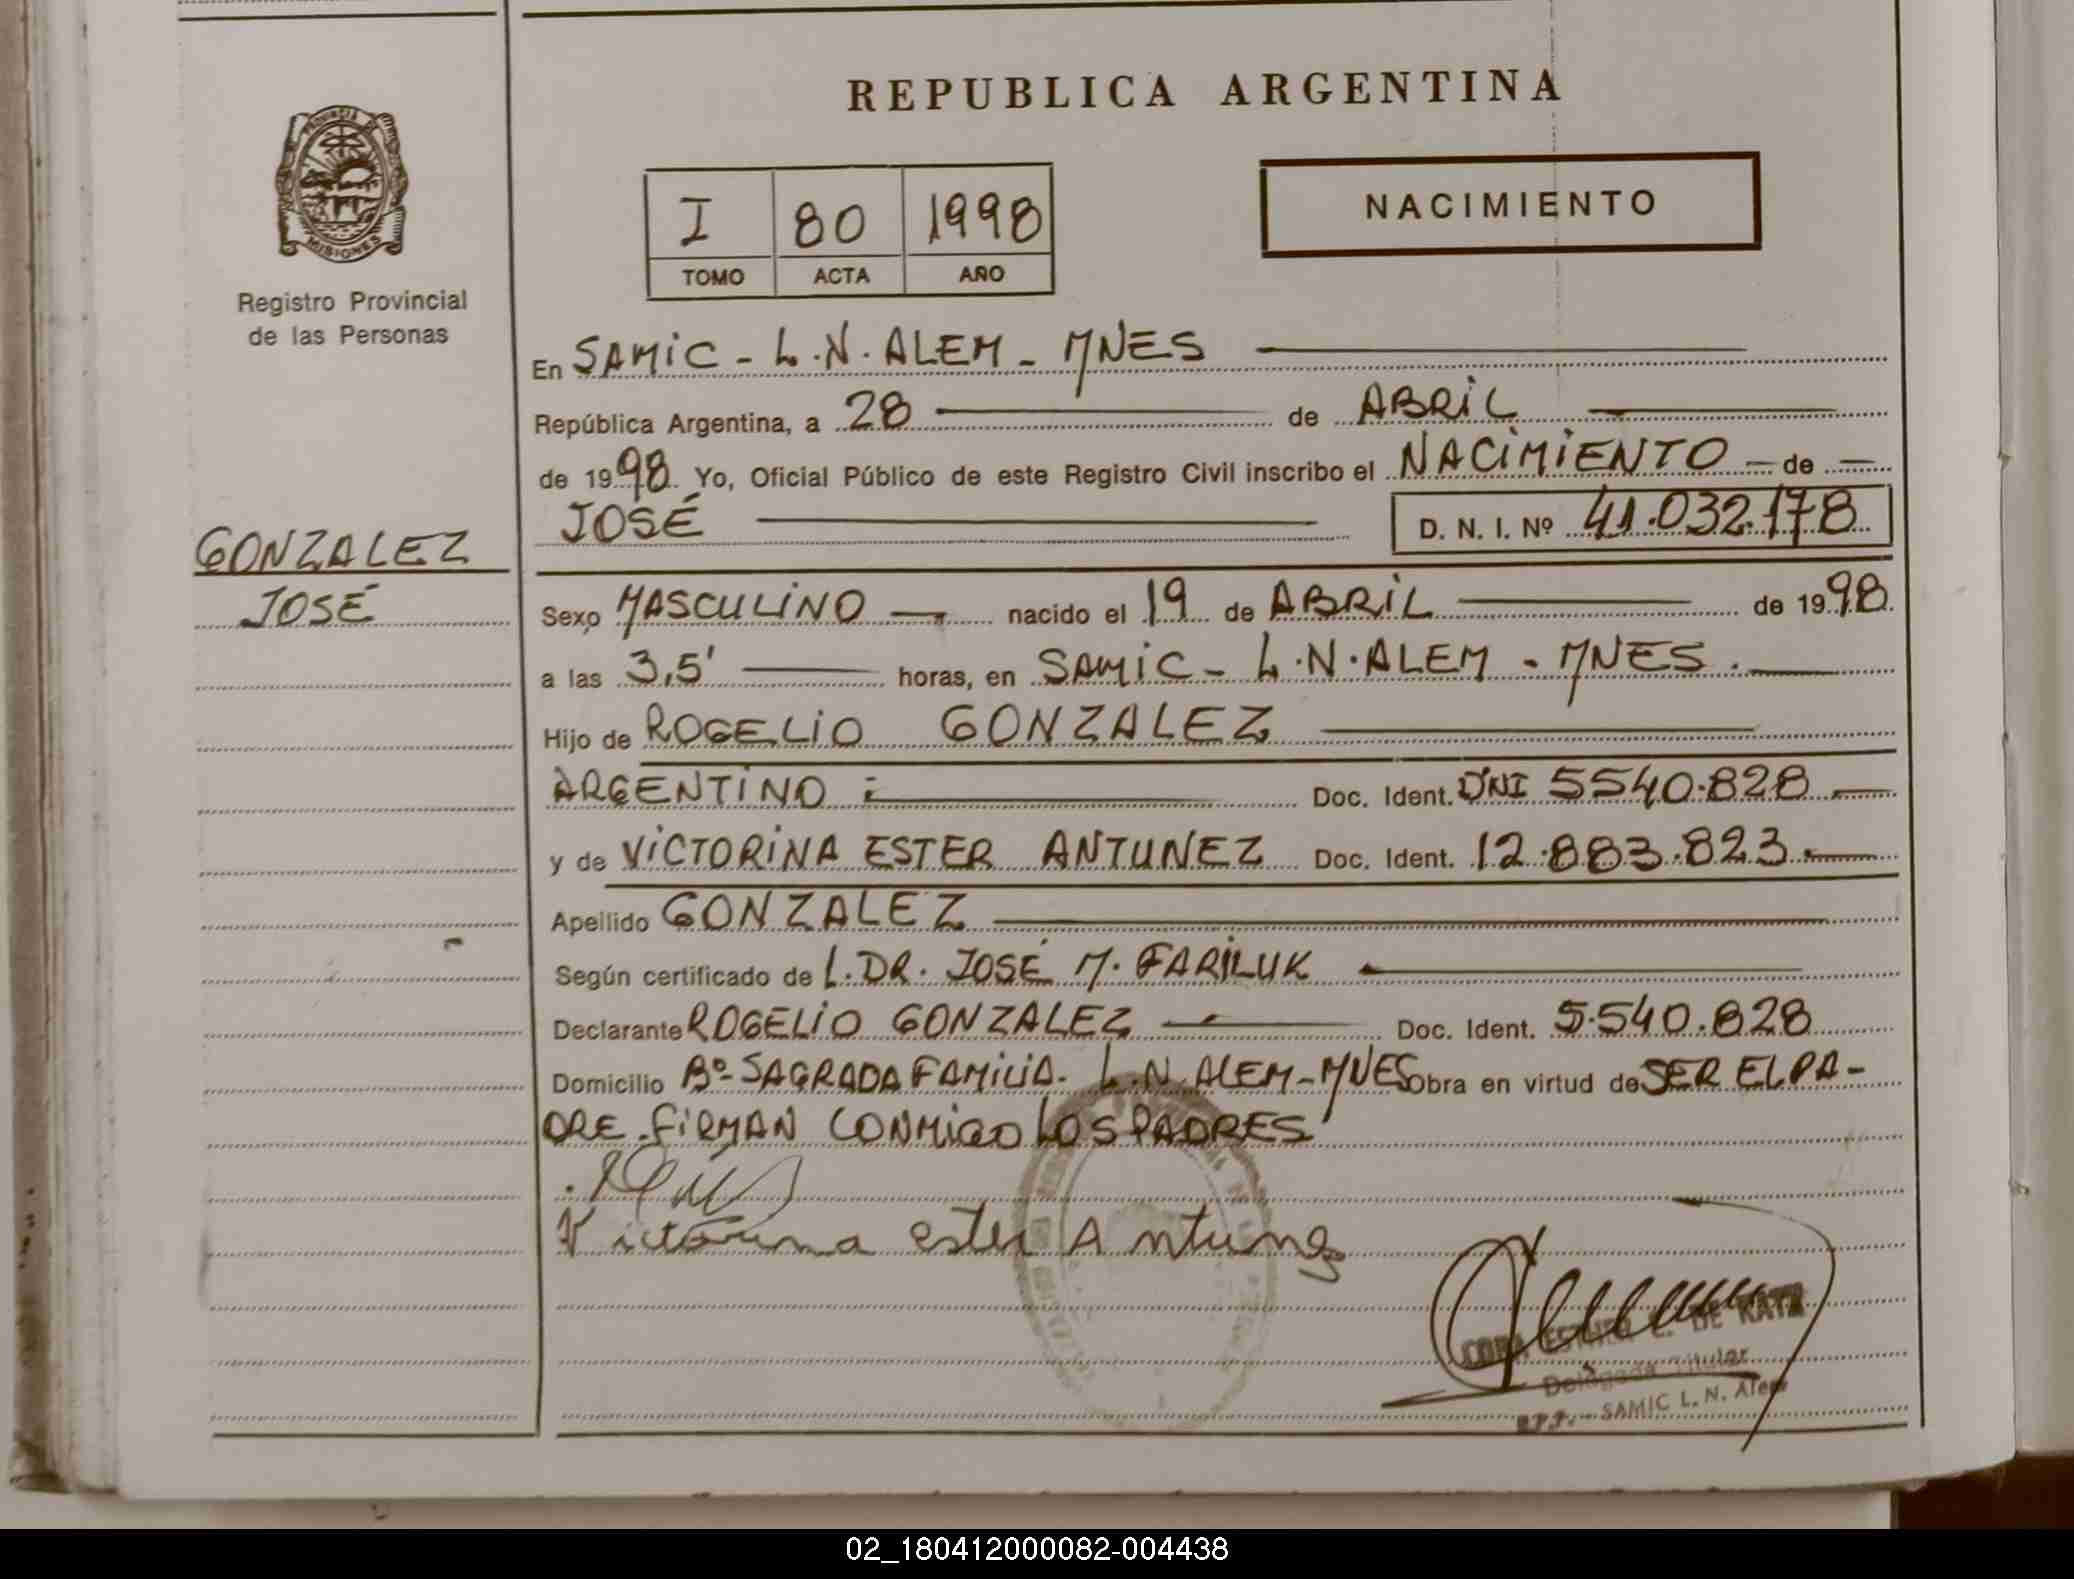 REPUBLICA ARGENTINA
PROVINCIA DE
MISIONES
Registro Provincial
de las Personas
I 80 1998
TOMO ACTA AÑO
NACIMIENTO
En SAMIC - L.N. ALEM - MNES
República Argentina, a 28 de ABRIL
de 1998 Yo, Oficial Público de este Registro Civil inscribo el NACIMIENTO de
JOSÉ D. N. I. Nº 41.032.178
GONZALEZ
JOSÉ
Sexo MASCULINO nacido el 19 de ABRIL de 1998
a las 3,5' horas, en SAMIC - L.N. ALEM - MNES.
Hijo de ROGELIO GONZALEZ
ARGENTINO Doc. Ident. DNI 5540.828
y de VICTORINA ESTER ANTUNEZ Doc. Ident. 12.883.823.
Apellido GONZALEZ
Según certificado de L. DR. JOSÉ M. FARILUK
Declarante ROGELIO GONZALEZ Doc. Ident. 5.540.828
Domicilio Bº SAGRADA FAMILIA. L.N. ALEM - MNES Obra en virtud de SER EL PA-
DRE. FIRMAN CONMIGO LOS PADRES
Victorina ester Antunez
ESTHER DE KATZ
Delegada Titular
SAMIC L. N. Alem
02_180412000082-004438